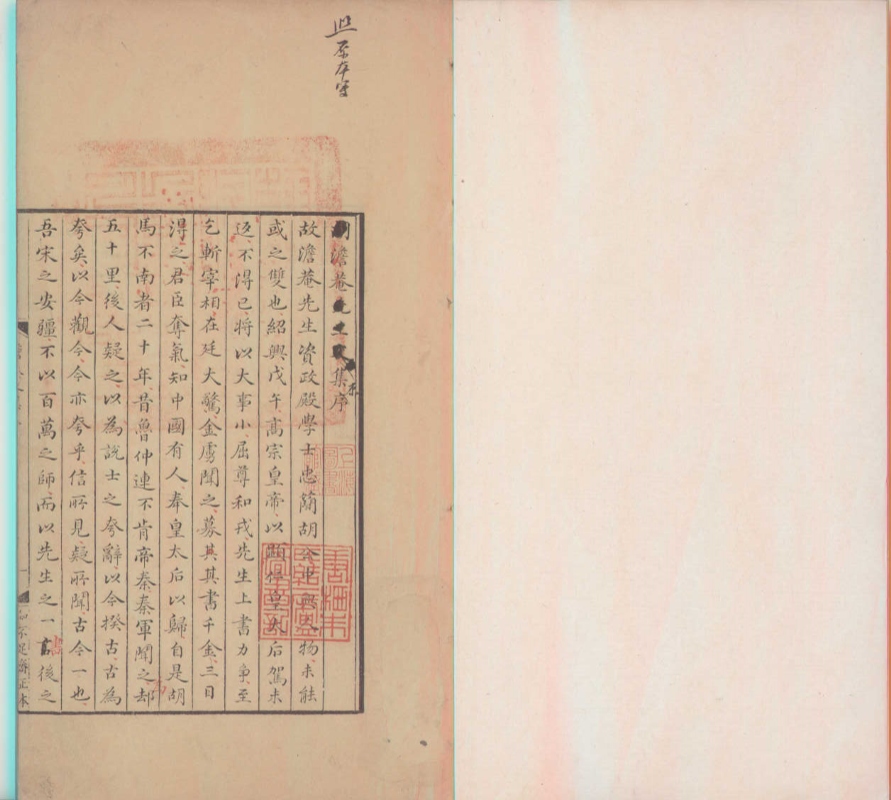 照原本写
澹菴先生文集序
故澹菴先生資政殿學士忠簡胡公中興人物未能
或之雙也紹興戊午高宗皇帝以顯仁皇太后駕未
返不得已將以大事小屈尊和戎先生上書力爭至
乞斬宰相在廷大驚金虜聞之募其書千金三日
得之君臣奪氣知中國有人奉皇太后以歸自是胡
馬不南者二十年昔魯仲連不肯帝秦秦軍聞之却
五十里後人疑之以為説士之夸辭以今揆古古為
夸矣以今觀今今亦夸乎信所見疑所聞古今一也
吾宋之安疆不以百萬之師而以先生之一言後之
知不足齋正本